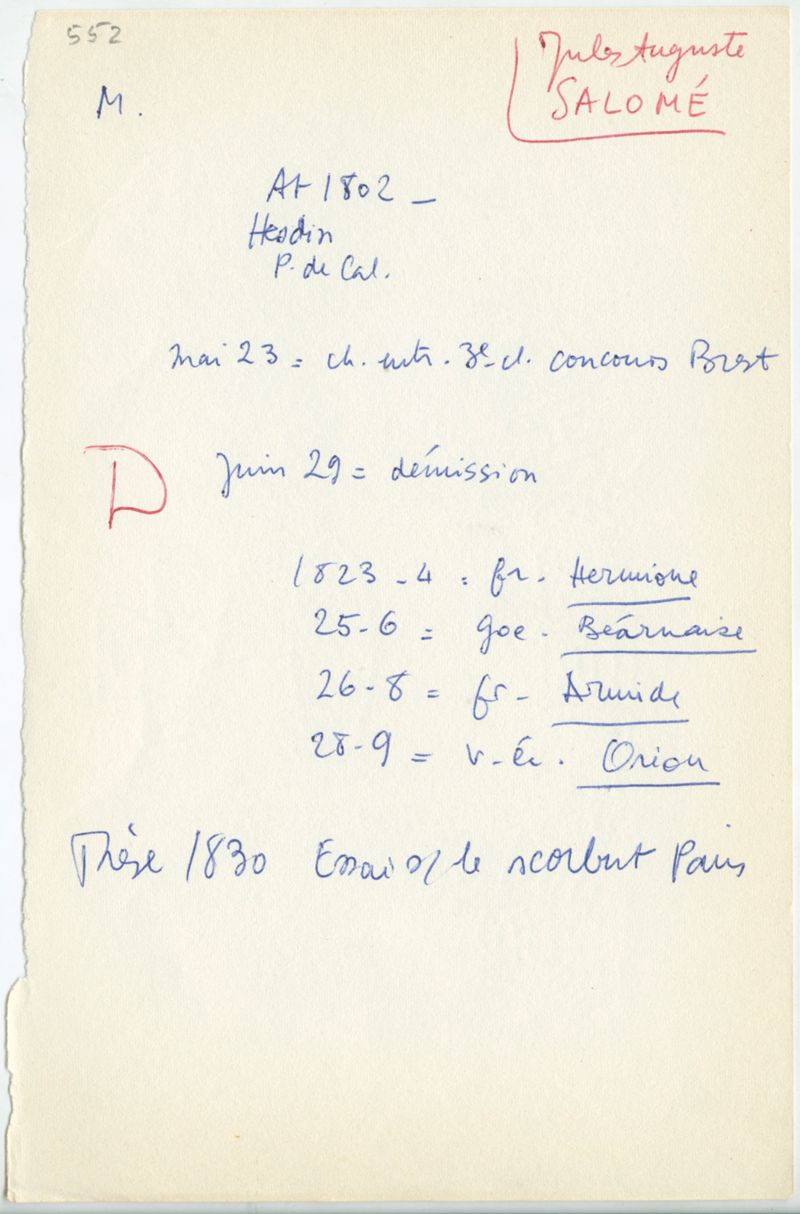 552
Jules Auguste
SALOMÉ
M.
At 1802 –
Hesdin
P. de Cal.
Mai 23 = ch. entr. 3e cl. concours Brest
D
Juin 29 = démission
1823 - 4 = fr. Hermione
25-6 = goe. Béarnaise
26-8 = fr. Armide
28-9 = v. éc. Orion
Thèse 1830 Essai s/ le scorbut Paris